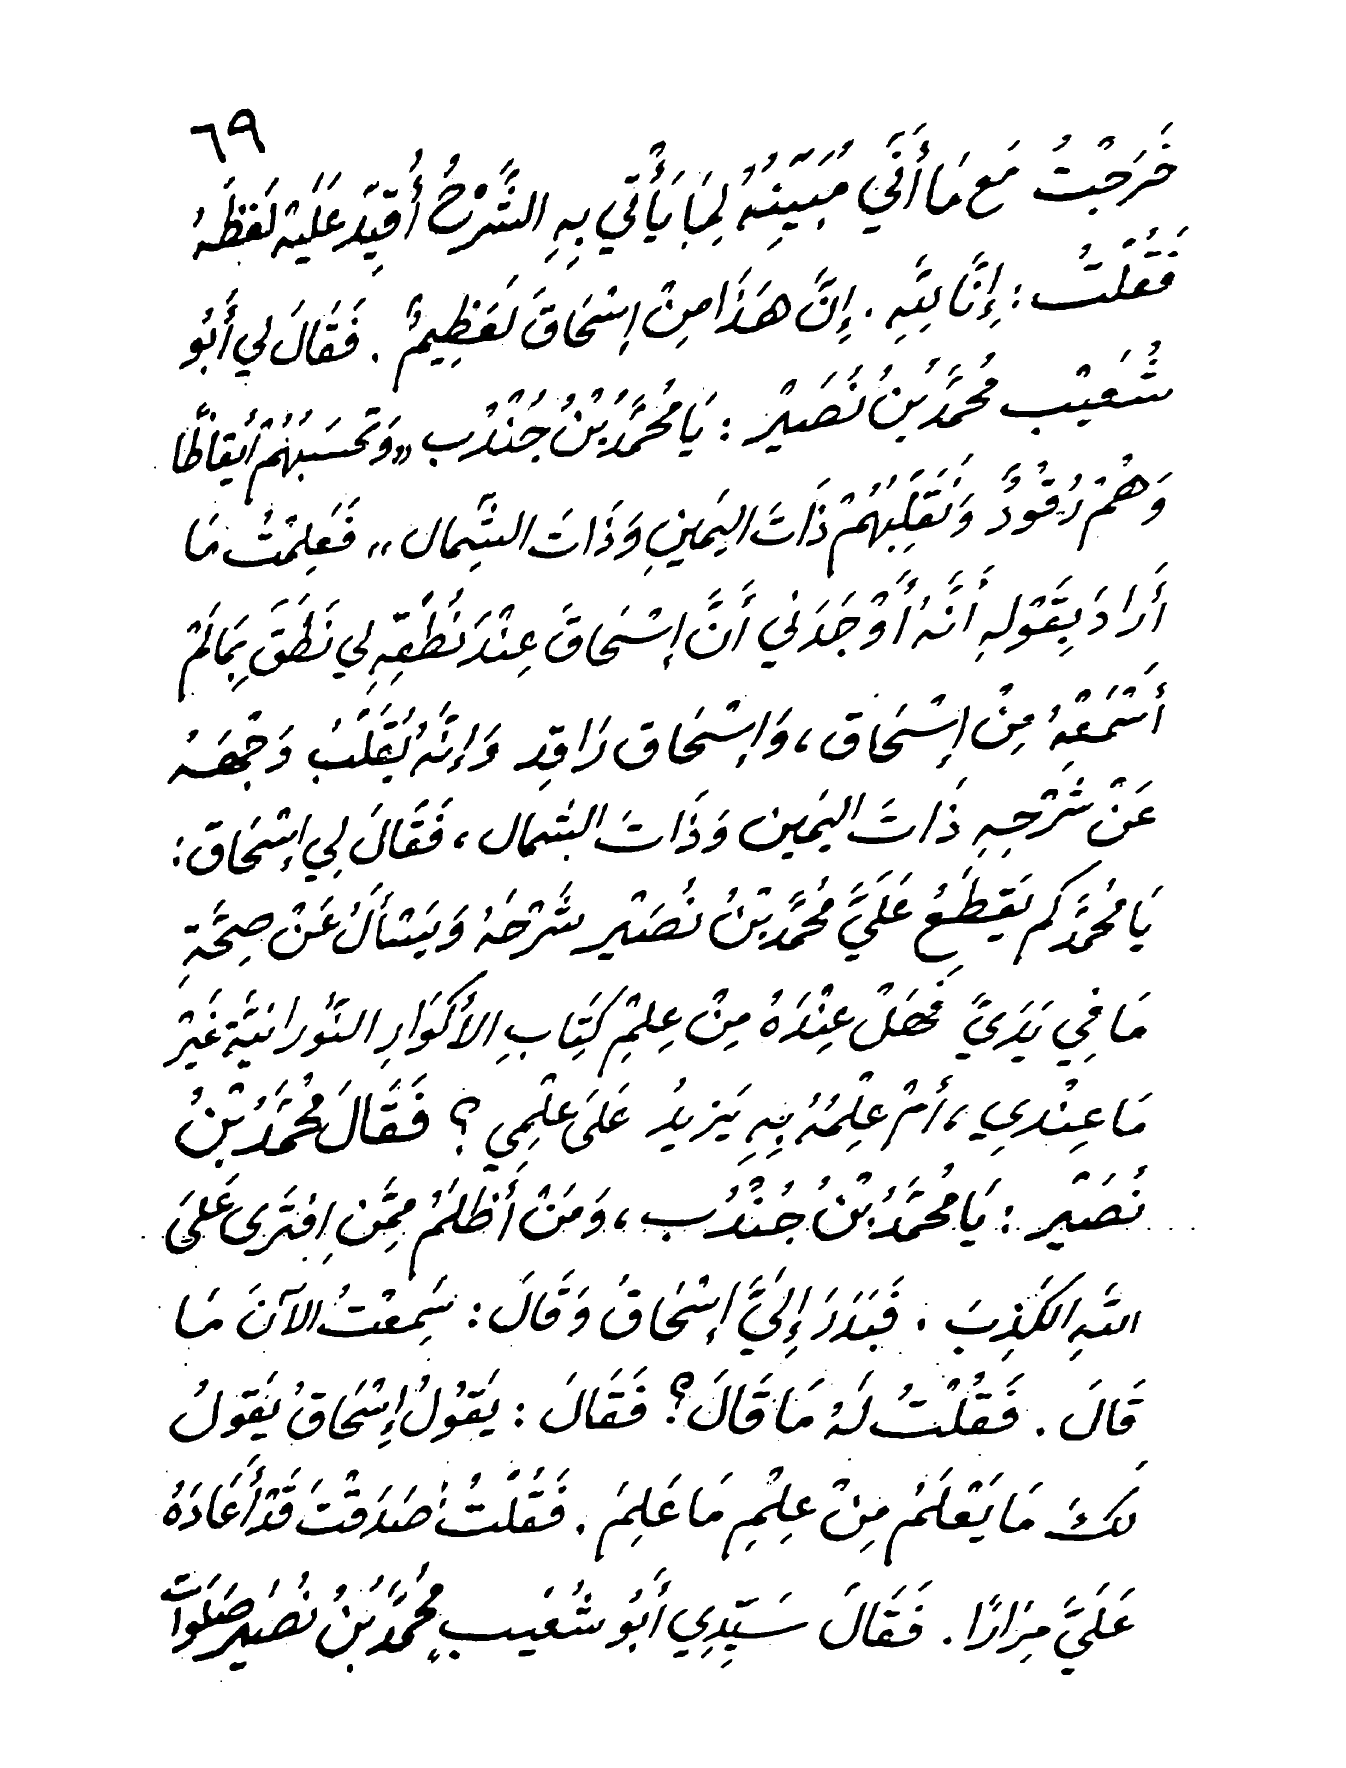 ٦٩
خَرَجْتُ مَع مَا أَنَّي مُبَيِّنُهُ لِمَا يَأْتي بِهِ الشَّرْحُ أُقَيِّدُ عَلَيْهِ لَفظَهُ
فَقُلْتُ : إِنَّا لِلَّهِ . إِنَّ هَذَا مِنْ إِسْحَاقَ لَعَظِيمٌ . فَقَالَ لي أَبُو
شُعَيْب مُحَمَّدُ بْنُ نُصَيْر : يَا مُحَمَّدُ بْنُ جُنْدُب «وَتَحْسَبُهُمْ أَيْقَاظًا
وَهُمْ رُقُودٌ وَنُقَلِّبُهُمْ ذَاتَ اليَمينِ وَذَاتَ الشِّمال» فَعَلِمْتُ مَا
أَرَادَ بِقَوْلِهِ أَنَّهُ أَوْجَدَني أَنَّ إِسْحَاقَ عِنْدَ نُطْقِهِ لِي نَطَقَ بِمَا لَمْ
أَسْتَمِعْهُ مِنْ إِسْحَاق، وَإِسْحَاق رَاقِد وَإِنَّهُ يُقَلِّبُ وَجْهَهُ
عَنْ شَرْحِهِ ذَاتَ اليَمين وَذَاتَ الشمال، فَقَالَ لِي إِسْحَاقَ:
يَا مُحَمَّد كم يَقطَعُ عَلَيَّ مُحَمَّد بْنُ نُصَيْر شَرْحَهُ وَيَسْأَلُ عَنْ صِحَّةِ
مَا فِي يَدَيَّ فَهَلْ عِنْدَهُ مِنْ عِلْمِ كِتَابِ الأَكْوَارِ النَّورانيَّة غَيْر
مَا عِنْدِي، أَمْ عِلْمُهُ بِهِ يَزيدُ عَلَى عِلْمِي ؟ فَقَالَ مُحَمَّدُ بْنُ
نُصَيْر : يَا مُحَمَّدُ بْنُ جُنْدُب، وَمَنْ أَظْلَمُ مِمَّنِ افْتَرى عَلَى
اللَّهِ الكَذِبَ . فَبَدَرَ إِلَيَّ إِسْحَاقُ وَقَالَ : سَمِعْتُ الآنَ مَا
قَالَ . فَقُلْتُ لَهُ مَا قَالَ ؟ فَقَالَ : يَقُولُ إِسْحَاقُ يَقولُ
لَكَ مَا يَعْلَمُ مِنْ عِلْمِ مَا عَلِمَ . فَقُلْتُ صَدَقْتَ قَدْ أَعَادَهُ
عَلَيَّ مِرَارًا . فَقَالَ سَيِّدِي أَبُو شُعَيب مُحَمَّدُ بْنُ نُصَير صَلَوَات